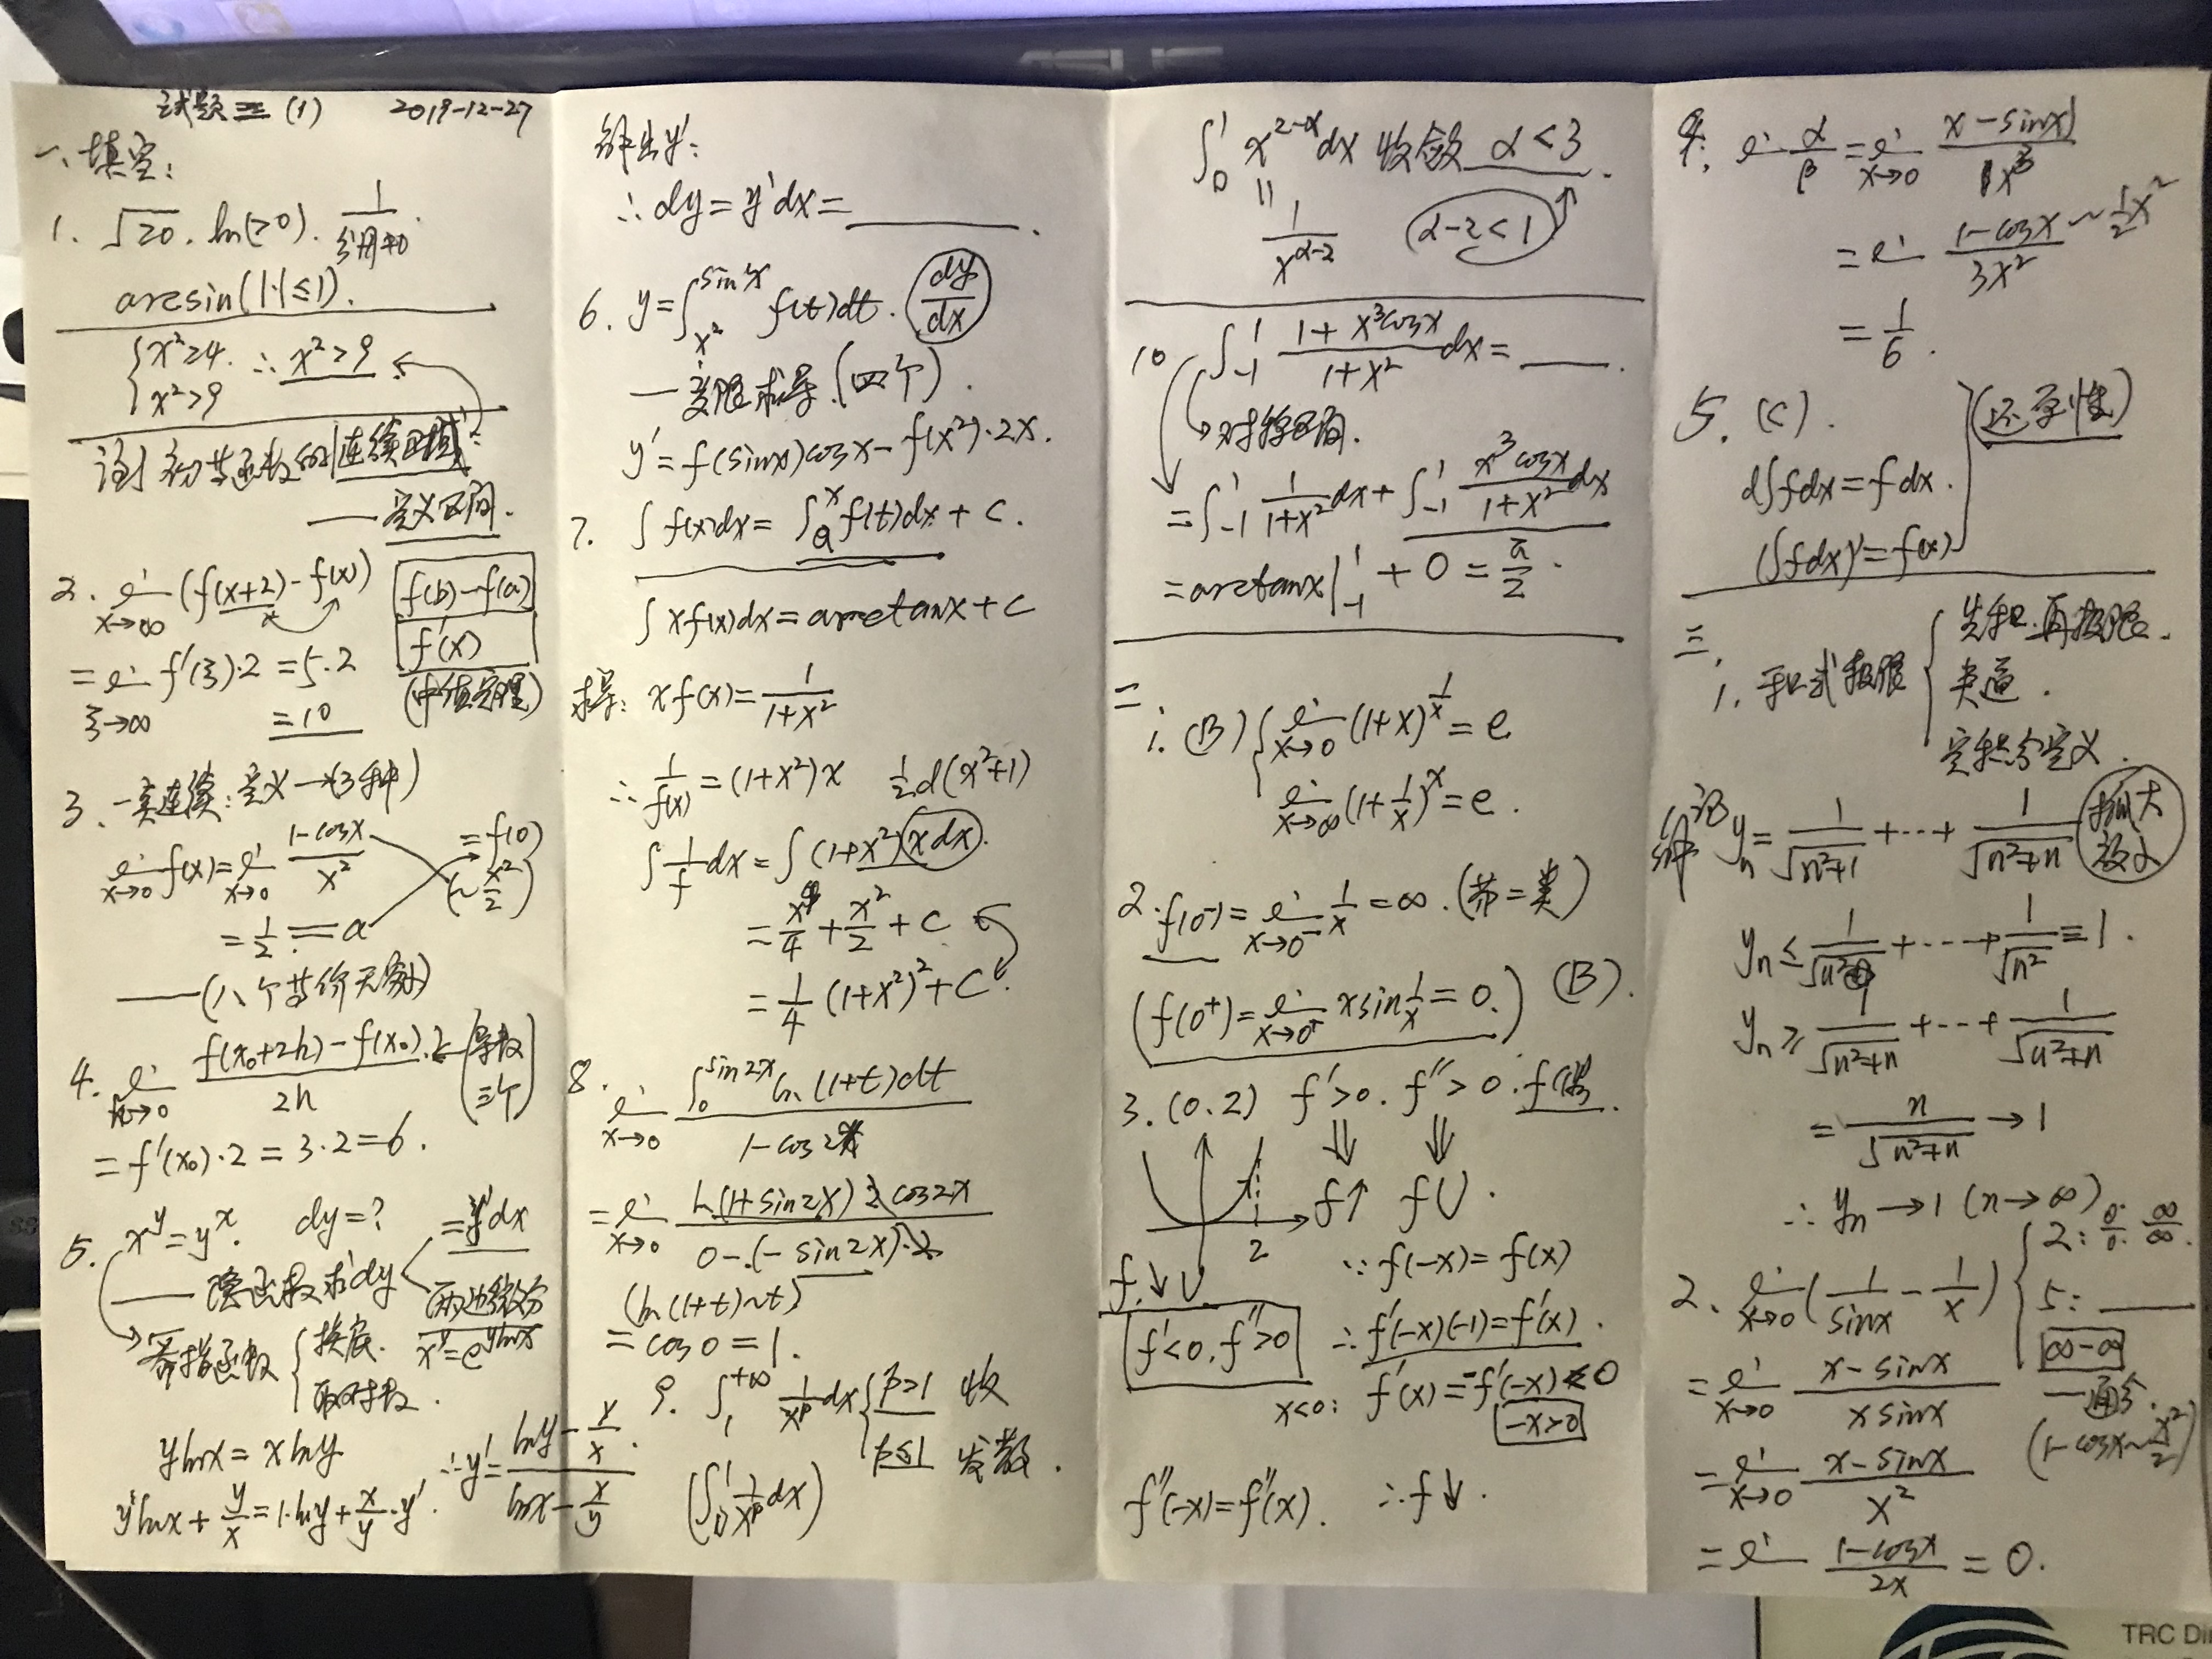 ASUS
试题三 (1) 2019-12-27
一、填空:
1. √≥0. ln(>0). 1/分母≠0.
arcsin(|·|≤1).
{x²≥4. ∴ x²>9
x²>9
初等函数的连续区域:
——定义区间.
2. lim x→∞ (f(x+2)-f(x)) f(b)-f(a)
= lim ξ→∞ f'(ξ)·2 = 5·2 f'(x)
=10 (中值定理)
3. 一点连续: 定义→(3种)
lim x→0 f(x) = lim x→0 (1-cosx)/x² =f(0)
(~x²/2)
= 1/2 = a
——(八个等价无穷小)
4. lim h→0 (f(x₀+2h)-f(x₀))/2h ·2 ← (导数三个)
= f'(x₀)·2 = 3·2 = 6.
5. x^y = y^x. dy=? =y'dx
——隐函数求dy 两边微分
幂指函数 {换底. x^y=e^(ylnx)
取对数.
ylnx = xlny
y'lnx + y/x = 1·lny + x/y·y'. ∴ y' = (lny - y/x)/(lnx - x/y).
解出y':
∴ dy = y'dx = ____.
6. y = ∫_{x²}^{sinx} f(t)dt. (dy/dx)
——变限求导.(四个).
y' = f(sinx)cosx - f(x²)·2x.
7. ∫f(x)dx = ∫_a^x f(t)dx + C.
∫xf(x)dx = arctanx + C
求导: xf(x) = 1/(1+x²)
∴ 1/f(x) = (1+x²)x ½d(x²+1)
∫1/f dx = ∫(1+x²)(xdx).
= x⁴/4 + x²/2 + C
= 1/4 (1+x²)² + C.
8. lim x→0 (∫_0^{sin2x} ln(1+t)dt)/(1-cos2x)
= lim x→0 (ln(1+sin2x)·2cos2x)/(0-(-sin2x)·2)
(ln(1+t)~t)
= cos0 = 1.
9. ∫_1^{+∞} 1/x^p dx {p>1 收
p≤1 发散.
(∫_0^1 1/x^p dx)
∫_0^1 x^{2-α}dx 收敛 α<3.
|| 1/x^{α-2} (α-2<1)
10 ∫_{-1}^1 (1+x³cosx)/(1+x²) dx = ____.
对称区间.
= ∫_{-1}^1 1/(1+x²) dx + ∫_{-1}^1 x³cosx/(1+x²) dx
= arctanx|_{-1}^1 + 0 = π/2.
二.
1. (B) {lim x→0 (1+x)^{1/x} = e
lim x→∞ (1+1/x)^x = e.
2. f(0⁻) = lim x→0⁻ 1/x = ∞. (第二类)
(f(0⁺) = lim x→0⁺ x sin 1/x = 0.) (B).
3. (0.2) f'>0. f''>0. f偶.
⇓ ⇓
2 f↑ f∪.
f.↓∪ ∵ f(-x)=f(x)
f'<0. f''>0 ∴ f'(-x)(-1)=f'(x).
x<0: f'(x)=-f'(-x)<0
-x>0
f''(-x)=f''(x). ∴ f↓.
4. lim α/β = lim x→0 (x-sinx)/x³
= lim (1-cosx)/3x² ~½x²
= 1/6.
5. (C).
d∫fdx = fdx. (还原性)
(∫fdx)'=f(x)
三、
1. 和式极限 {先和.再极限.
夹逼.
定积分定义.
解 记 yₙ = 1/√(n²+1) + ⋯ + 1/√(n²+n) (抓大放小)
yₙ ≤ 1/√n² + ⋯ + 1/√n² = 1.
yₙ ≥ 1/√(n²+n) + ⋯ + 1/√(n²+n)
= n/√(n²+n) → 1
∴ yₙ → 1 (n→∞)
2. lim x→0 (1/sinx - 1/x) {2: 0/0. ∞/∞.
5: ____
∞-∞
= lim x→0 (x-sinx)/(xsinx) —通分.
(1-cosx~x²/2)
= lim x→0 (x-sinx)/x²
= lim (1-cosx)/2x = 0.
TRC Di